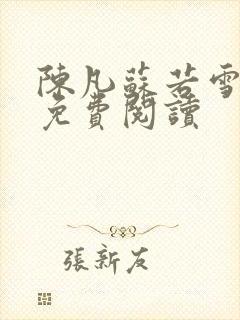 陳凡蘇若雪
免費閱讀
張新友